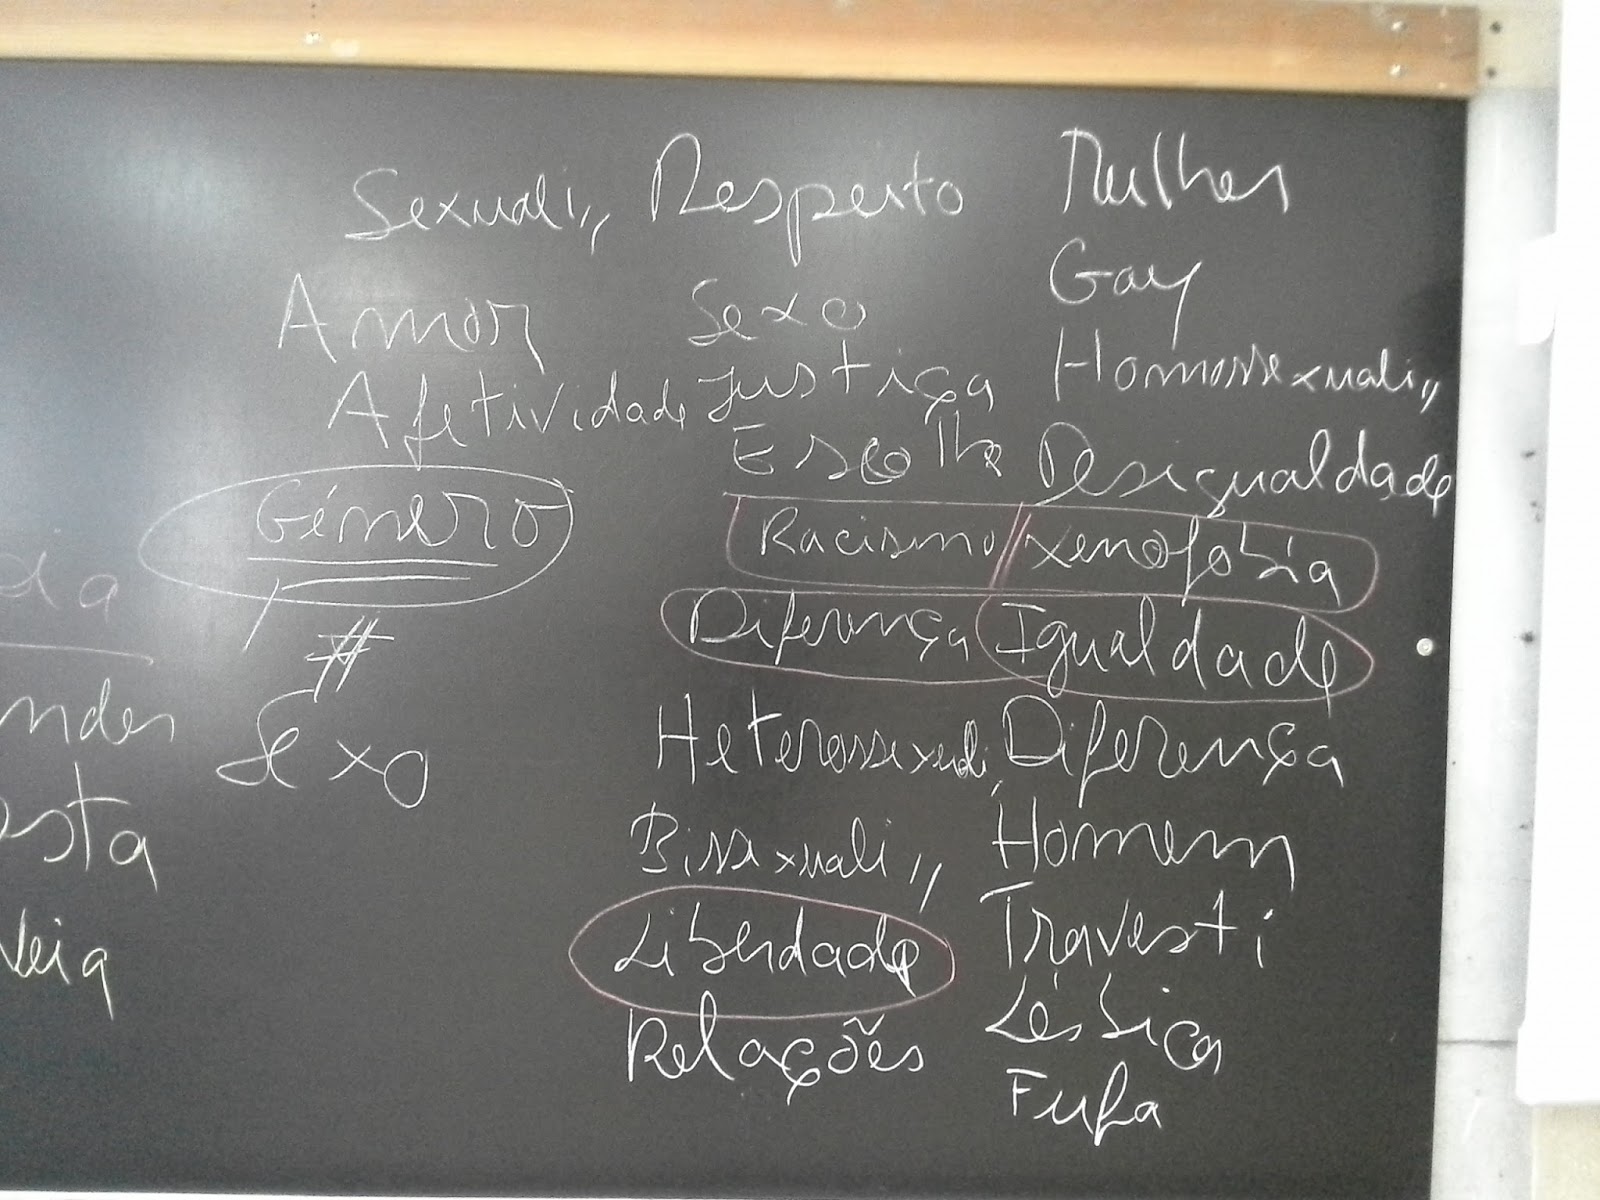 Sexuali,, Respeito Mulher
Amor Sexo Gay
Afetividade Justiça Homossexuali,,
Escolha Desigualdade
Género Racismo Xenofobia
da
Diferença Igualdade
#
nder Sexo Heterossexuali,, Diferença
osta Bissexuali,, Homem
Veiga Liberdade Travesti
Relações Lésbica
Fufa